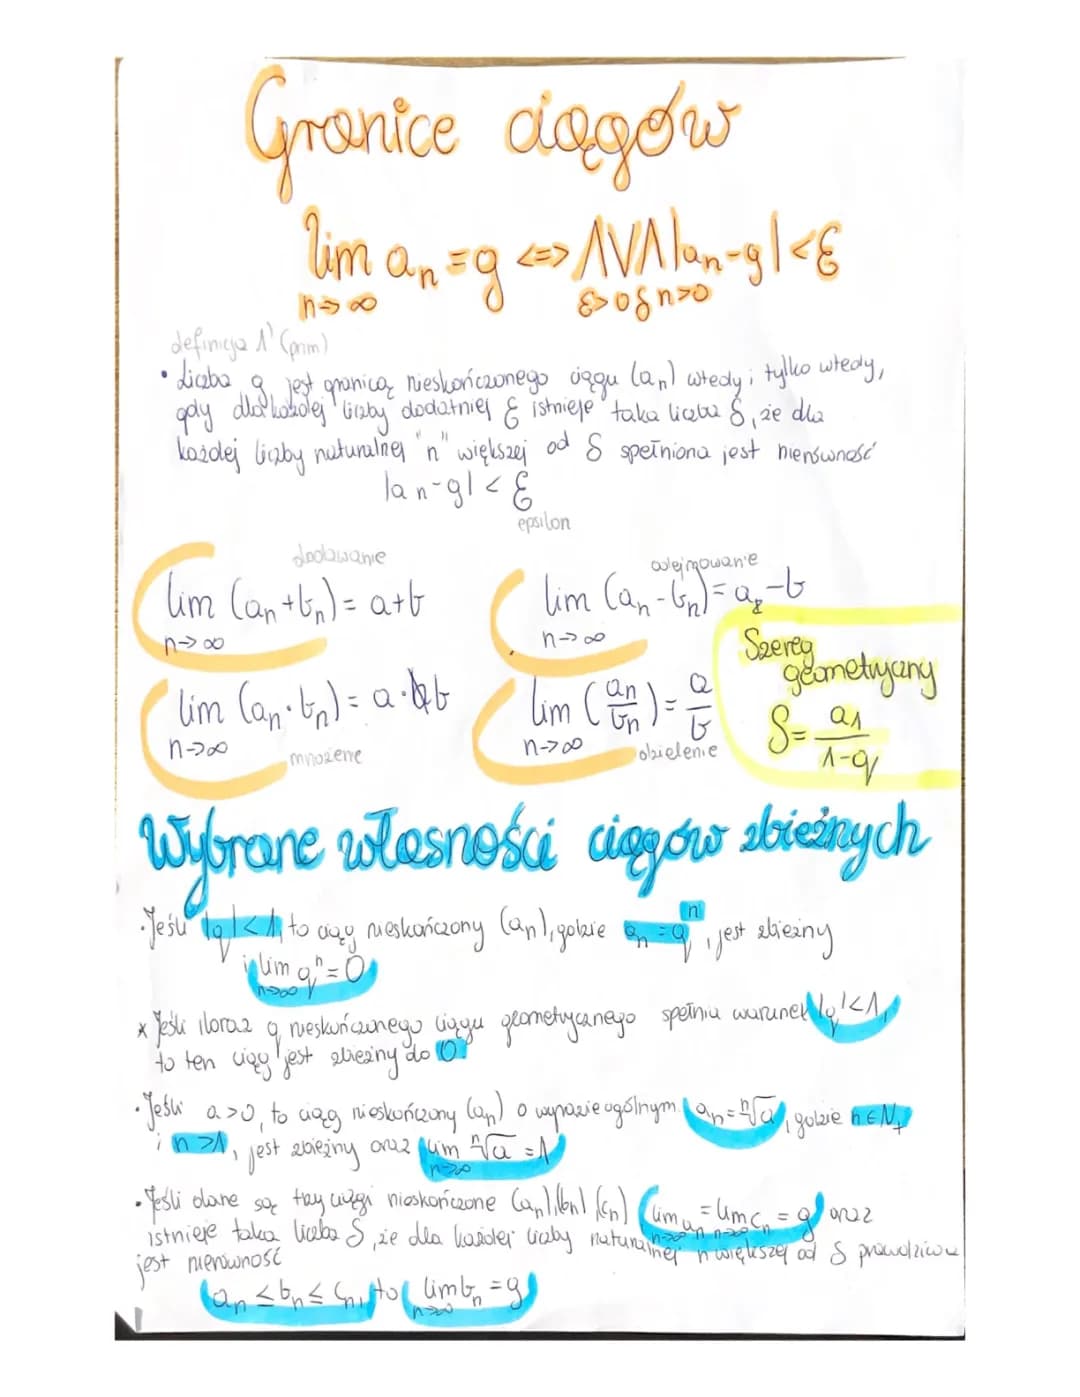 Granice ciągów
lim aₙ = g <=> ΛVΛ |aₙ-g| < ε
n→∞ ε>0 δ n>0
definicja 1' (prim)
• Liczba g jest granicą nieskończonego ciągu (aₙ) wtedy i tylko wtedy,
gdy dla każdej liczby dodatniej ε istnieje taka liczba δ, że dla
każdej liczby naturalnej "n" większej od δ spełniona jest nierówność
|aₙ-g| < ε
epsilon
dodawanie
lim (aₙ+bₙ) = a+b
n→∞
odejmowanie
lim (aₙ-bₙ) = a-b
n→∞
lim (aₙ·bₙ) = a·b
n→∞
mnożenie
lim (aₙ/bₙ) = a/b
n→∞
dzielenie
Szereg
geometryczny
S = a₁/(1-q)
Wybrane własności ciągów zbieżnych
• Jeśli |q|<1, to ciąg nieskończony (aₙ), gdzie aₙ = qⁿ, jest zbieżny
i lim qⁿ = 0
n→∞
* Jeśli iloraz q nieskończonego ciągu geometrycznego spełnia warunek |q|<1,
to ten ciąg jest zbieżny do 0.
• Jeśli a>0, to ciąg nieskończony (aₙ) o wyrazie ogólnym aₙ = ⁿ√a, gdzie n∈N₊
i n>1, jest zbieżny oraz lim ⁿ√a = 1
n→∞
• Jeśli dane są trzy ciągi nieskończone (aₙ), (bₙ), (cₙ) lim aₙ = lim cₙ = g oraz
n→∞ n→∞
istnieje taka liczba δ, że dla każdej liczby naturalnej n większej od δ prawdziwa
jest nierówność
aₙ ≤ bₙ ≤ cₙ, to lim bₙ = g
n→∞